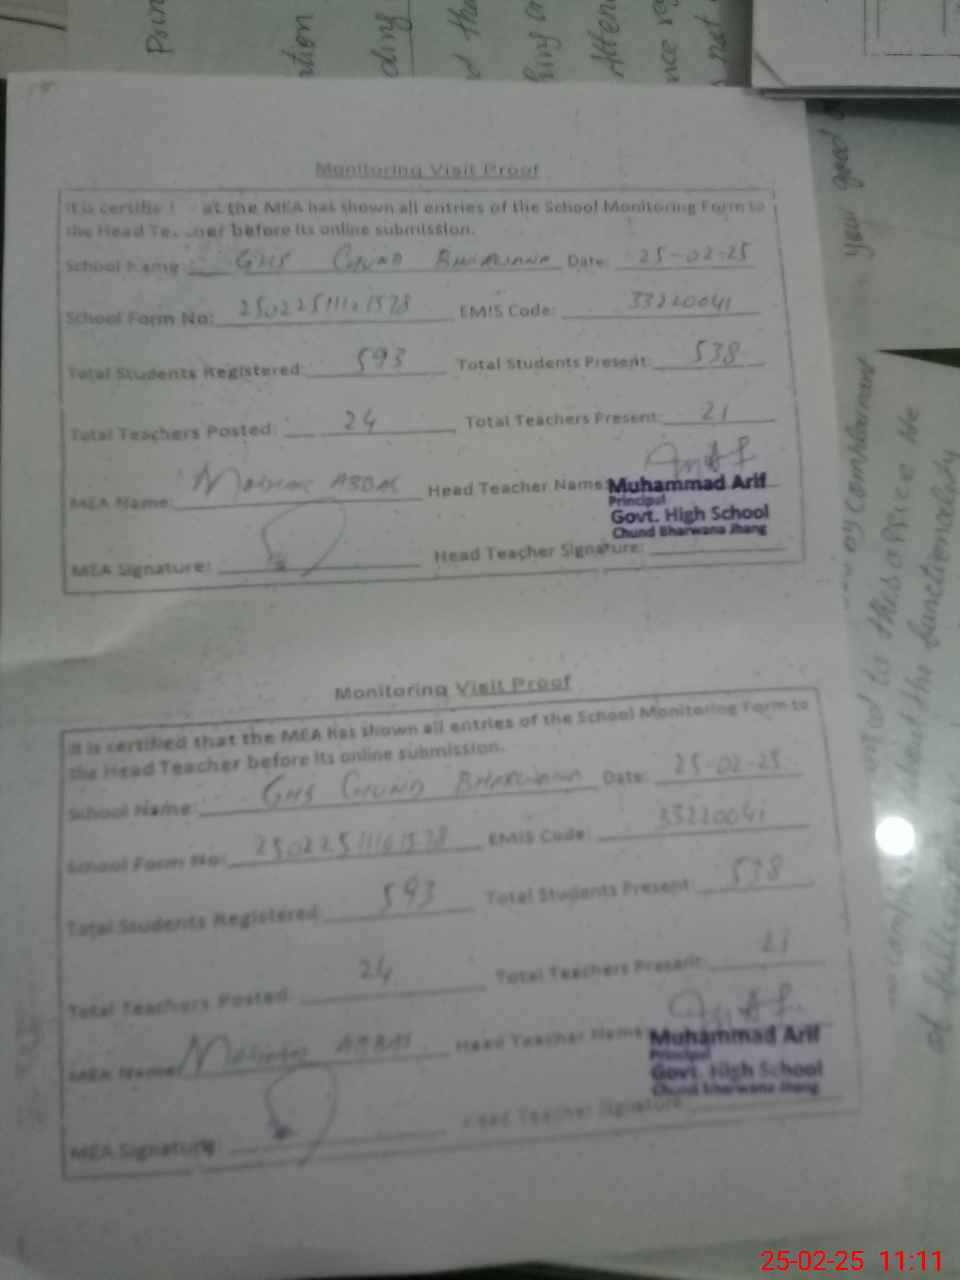 Monitoring Visit Proof
It is certifie at the MEA has shown all entries of the School Monitoring Form to
the Head Te cher before its online submission.
School Name: GHS CHUND BHARWANA Date: 25-02-25
School Form No: EMIS Code: 33220041
Total Students Registered: 593 Total Students Present: 538
Total Teachers Posted: 24 Total Teachers Present: 21
MEA Name: ABBAS Head Teacher Name:
Muhammad Arif
Principal
Govt. High School
Chund Bharwana Jhang
MEA Signature: Head Teacher Signature:
Monitoring Visit Proof
It is certified that the MEA has shown all entries of the School Monitoring Form to
the Head Teacher before its online submission.
School Name: GHS CHUND BHARWANA Date: 25-02-25
School Form No: EMIS Code: 33220041
Total Students Registered: 593 Total Students Present: 538
Total Teachers Posted: 24 Total Teachers Present: 21
MEA Name: ABBAS Head Teacher Name:
Muhammad Arif
Principal
Govt. High School
Chund Bharwana Jhang
MEA Signature Head Teacher Signature
your good
to this office
about the functionality
25-02-25 11:11